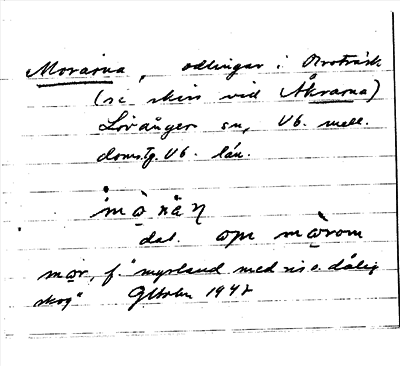 Morarna, odlingar i Broträsk
(se skiss vid Åkrarna)
Lövånger sn, Vb. mell.
doms.tg. Vb. län.
mòrän
dat. òpm mòrom
mor, f. "myrland med ris o. dålig
skog" 1947